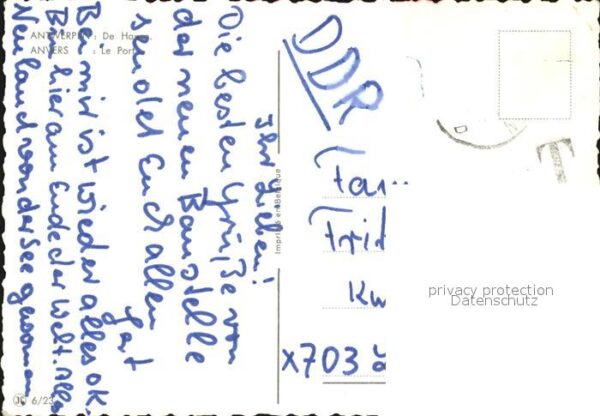 ANTWERPEN : De Haven
ANVERS : Le Port
Ihr Lieben!
Die besten Grüße von
der neuen Baustelle
sendet Euch allen
Gert
Bei mir ist wieder alles ok.
Bin hier am Ende der Welt. Alles
Neuland von der See gewonnen
Imprimé en Belgique
6/23
DDR
Fam..
Frid
Kw
X703
T
privacy protection
Datenschutz